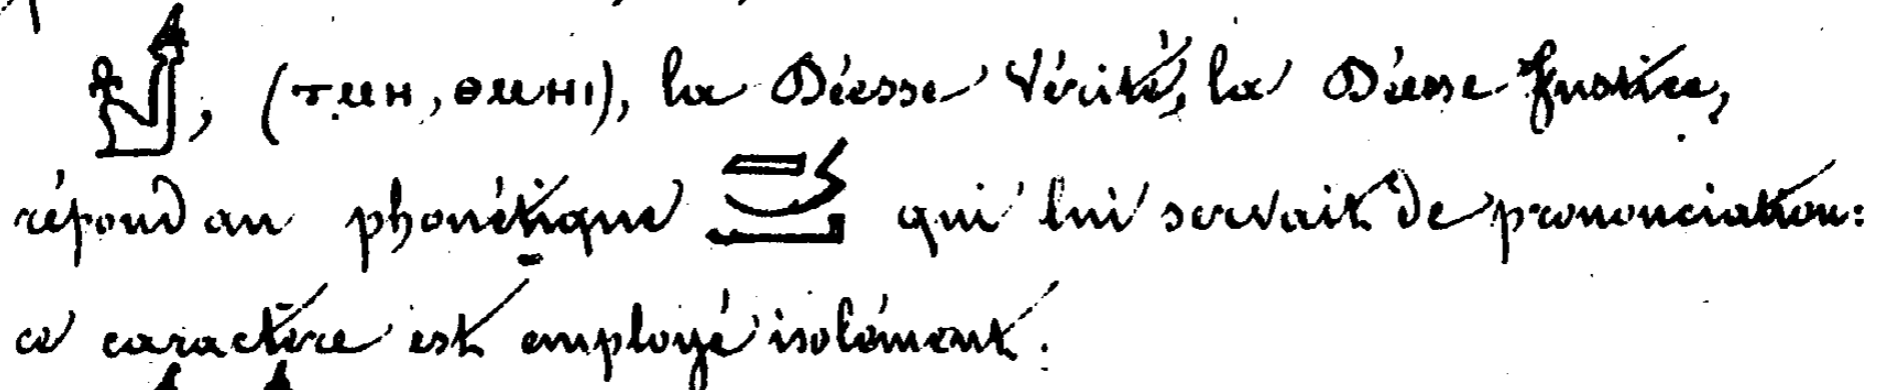 , (ⲧⲙⲏ, ⲑⲙⲏⲓ), la Déesse Vérité, la Déesse Justice,
répond au phonétique qui lui servait de prononciation:
ce caractère est employé isolément.